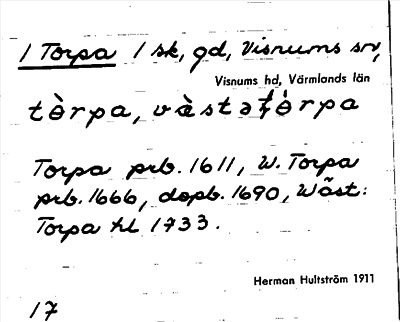 1 Torpa 1 sk, gd, Visnums sn,
Visnums hd, Värmlands län
tɵ̀rpa, vàstətɵ̀rpa
Torpa prb. 1611, W. Torpa
prb. 1666, dopb. 1690, Wäst:
Torpa hl 1733.
Herman Hultström 1911
17